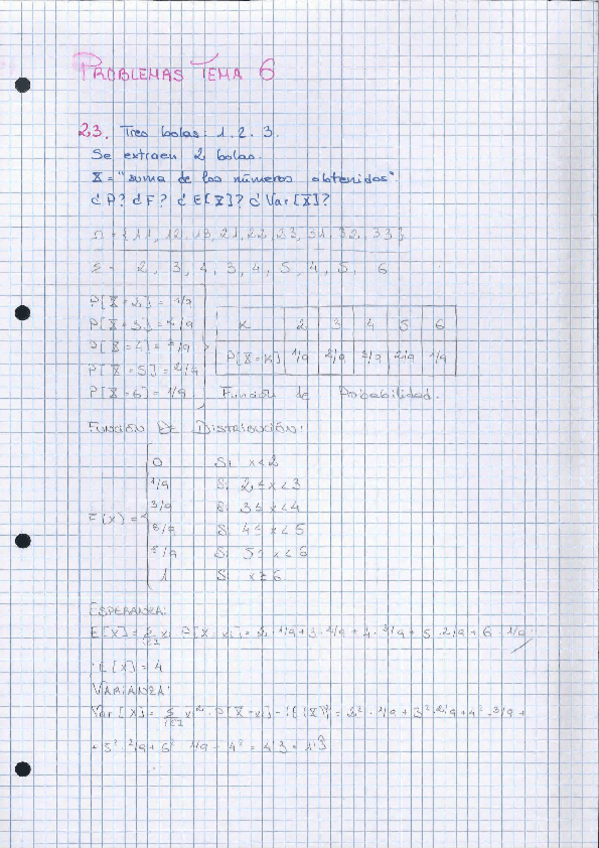 PROBLEMAS TEMA 6
2.3. Tres bolas: 1. 2. 3.
Se extraen 2 bolas.
X = "suma de los números obtenidos".
¿P? ¿F? ¿E[X]? ¿Var[X]?
Ω = {11, 12, 13, 21, 22, 23, 31, 32, 33}
2, 3, 4, 3, 4, 5, 4, 5, 6
P[X=2] = 1/9
P[X=3] = 2/9
P[X=4] = 3/9
P[X=5] = 2/9
P[X=6] = 1/9
K 2 3 4 5 6
P[X=K] 1/9 2/9 3/9 2/9 1/9
Función de Probabilidad.
FUNCIÓN DE DISTRIBUCIÓN:
F(x) =
0 Si x<2
1/9 Si 2≤x<3
3/9 Si 3≤x<4
Si 4≤x<5
8/9 Si 5≤x<6
1 Si x≥6
ESPERANZA:
E[X] = Σ xi P[X=xi] = 2 · 1/9 + 3 · 2/9 + 4 · 3/9 + 5 · 2/9 + 6 · 1/9
E[X] = 4
VARIANZA:
Var[X] = Σ xi² · P[X=xi] - (E[X])² = 2² · 1/9 + 3² · 2/9 + 4² · 3/9 +
+ 5² · 2/9 + 6² · 1/9 - 4² =